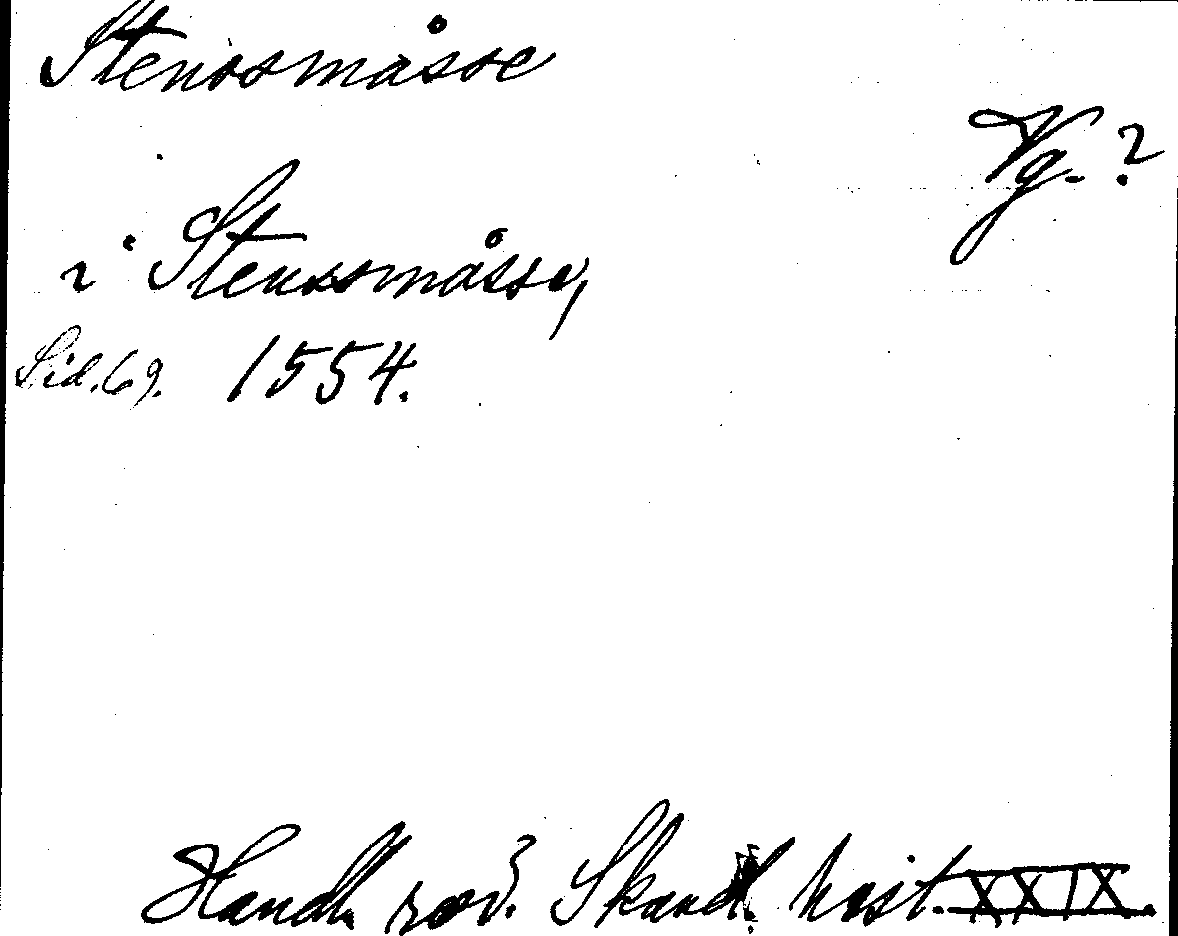 Stenssmåsse
Vg. ?
i Stenssmåsse,
Sid. 69. 1554.
Handl. röv. Skand. hist. XXIX.